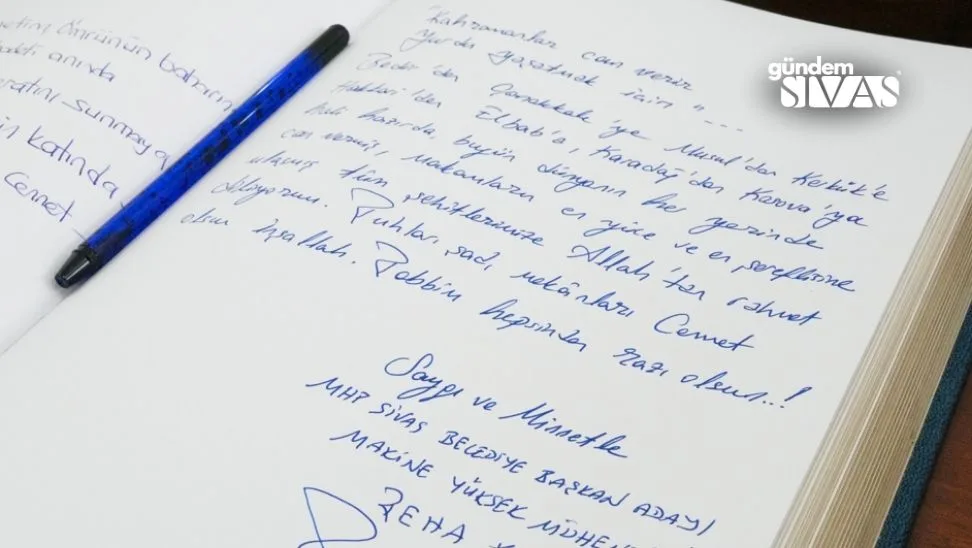 gündem
SİVAS
anında
sunmay
katında
Cennet
"Kahramanlar can verir
Yurdu yaşatmak için" ...
Bedir'den Çanakkale'ye Musul'dan Kerkük'e
Hakkari'den Elbab'a, Karadağ'dan Kosova'ya
hali hazırda, bugün dünyanın her yerinde
can vermiş, makamların en yüce ve en şereflisine
ulaşmış tüm şehitlerimize Allah'tan rahmet
diliyorum. Ruhları şad, mekânları Cennet
olsun inşallah. Rabbim hepsinden razı olsun..!
Saygı ve Minnetle
MHP SİVAS BELEDİYE BAŞKAN ADAYI
MAKİNE YÜKSEK MÜHEN
REHA